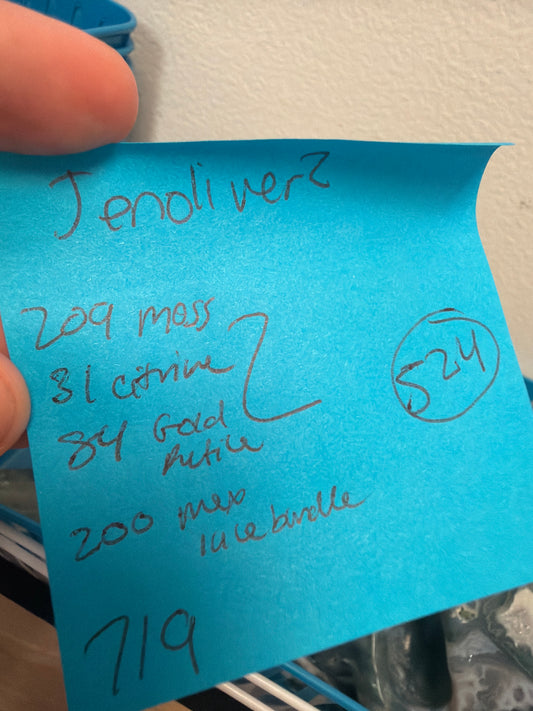 Jenoliver2
209 moss
31 citrine
84 Gold
Rutile
200 mex
lace bundle
524
719